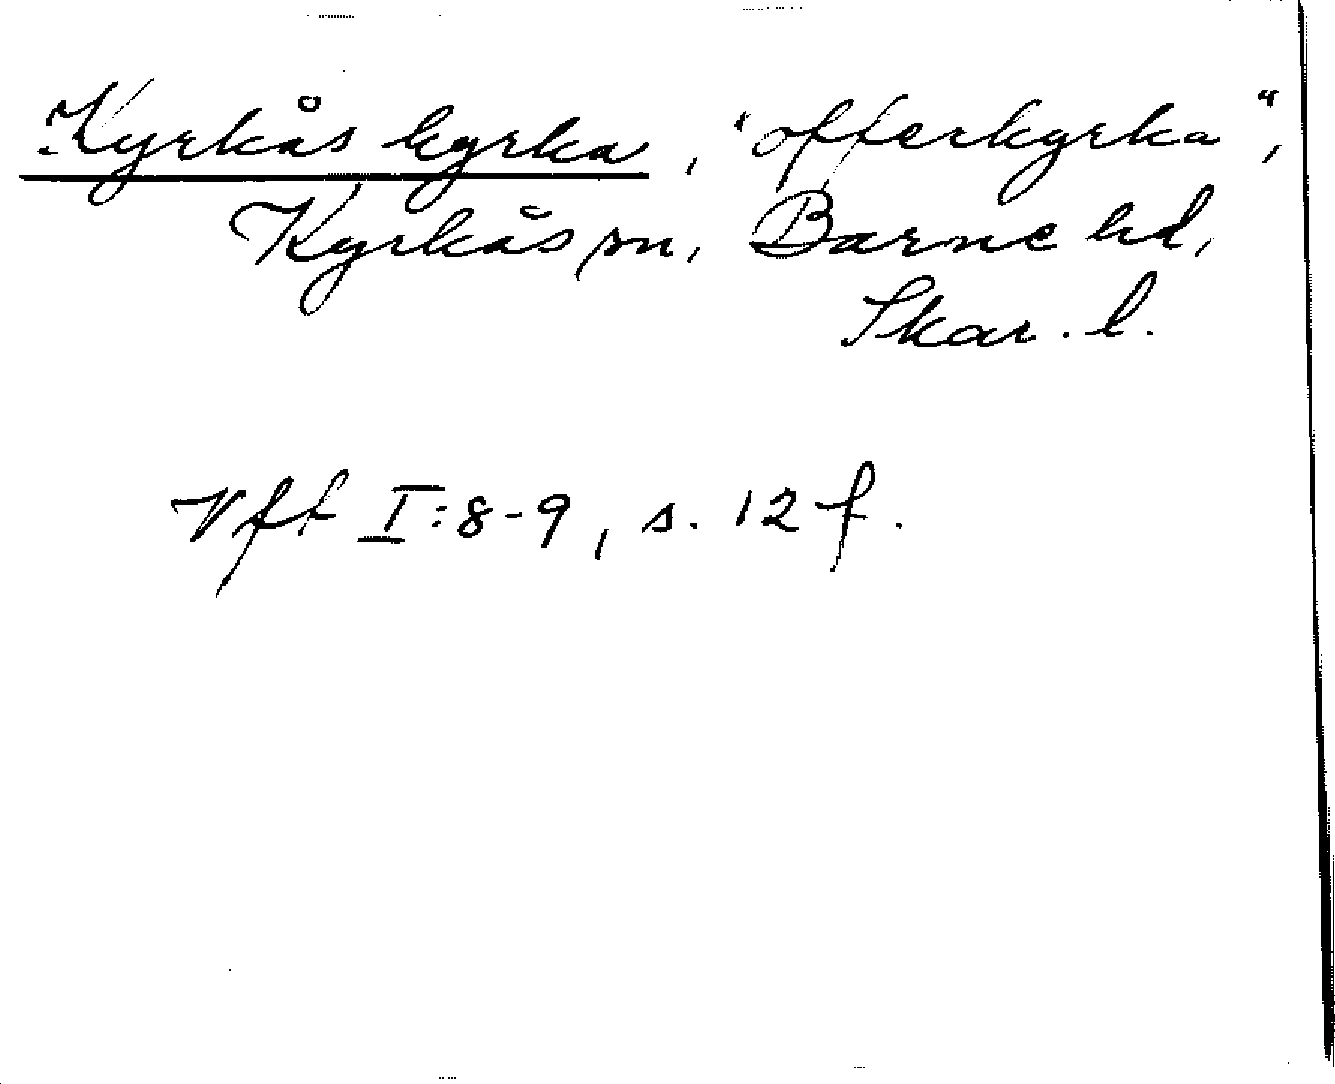 Kyrkås kyrka, "offerkyrka",
Kyrkås sn, Barne hd,
Skar. l.
Vft I:8-9, s. 12 f.